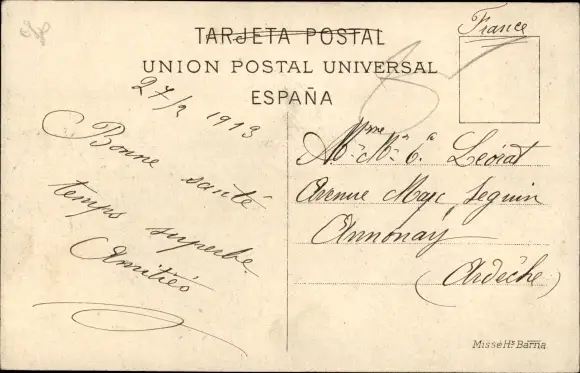 France
TARJETA POSTAL
UNION POSTAL UNIVERSAL
ESPAÑA
27/2 1913
Bonne santé
temps superbe
Amitiés
Léorat
Avenue Marc Seguin
Annonay
(Ardèche)
Missé Hs Barna